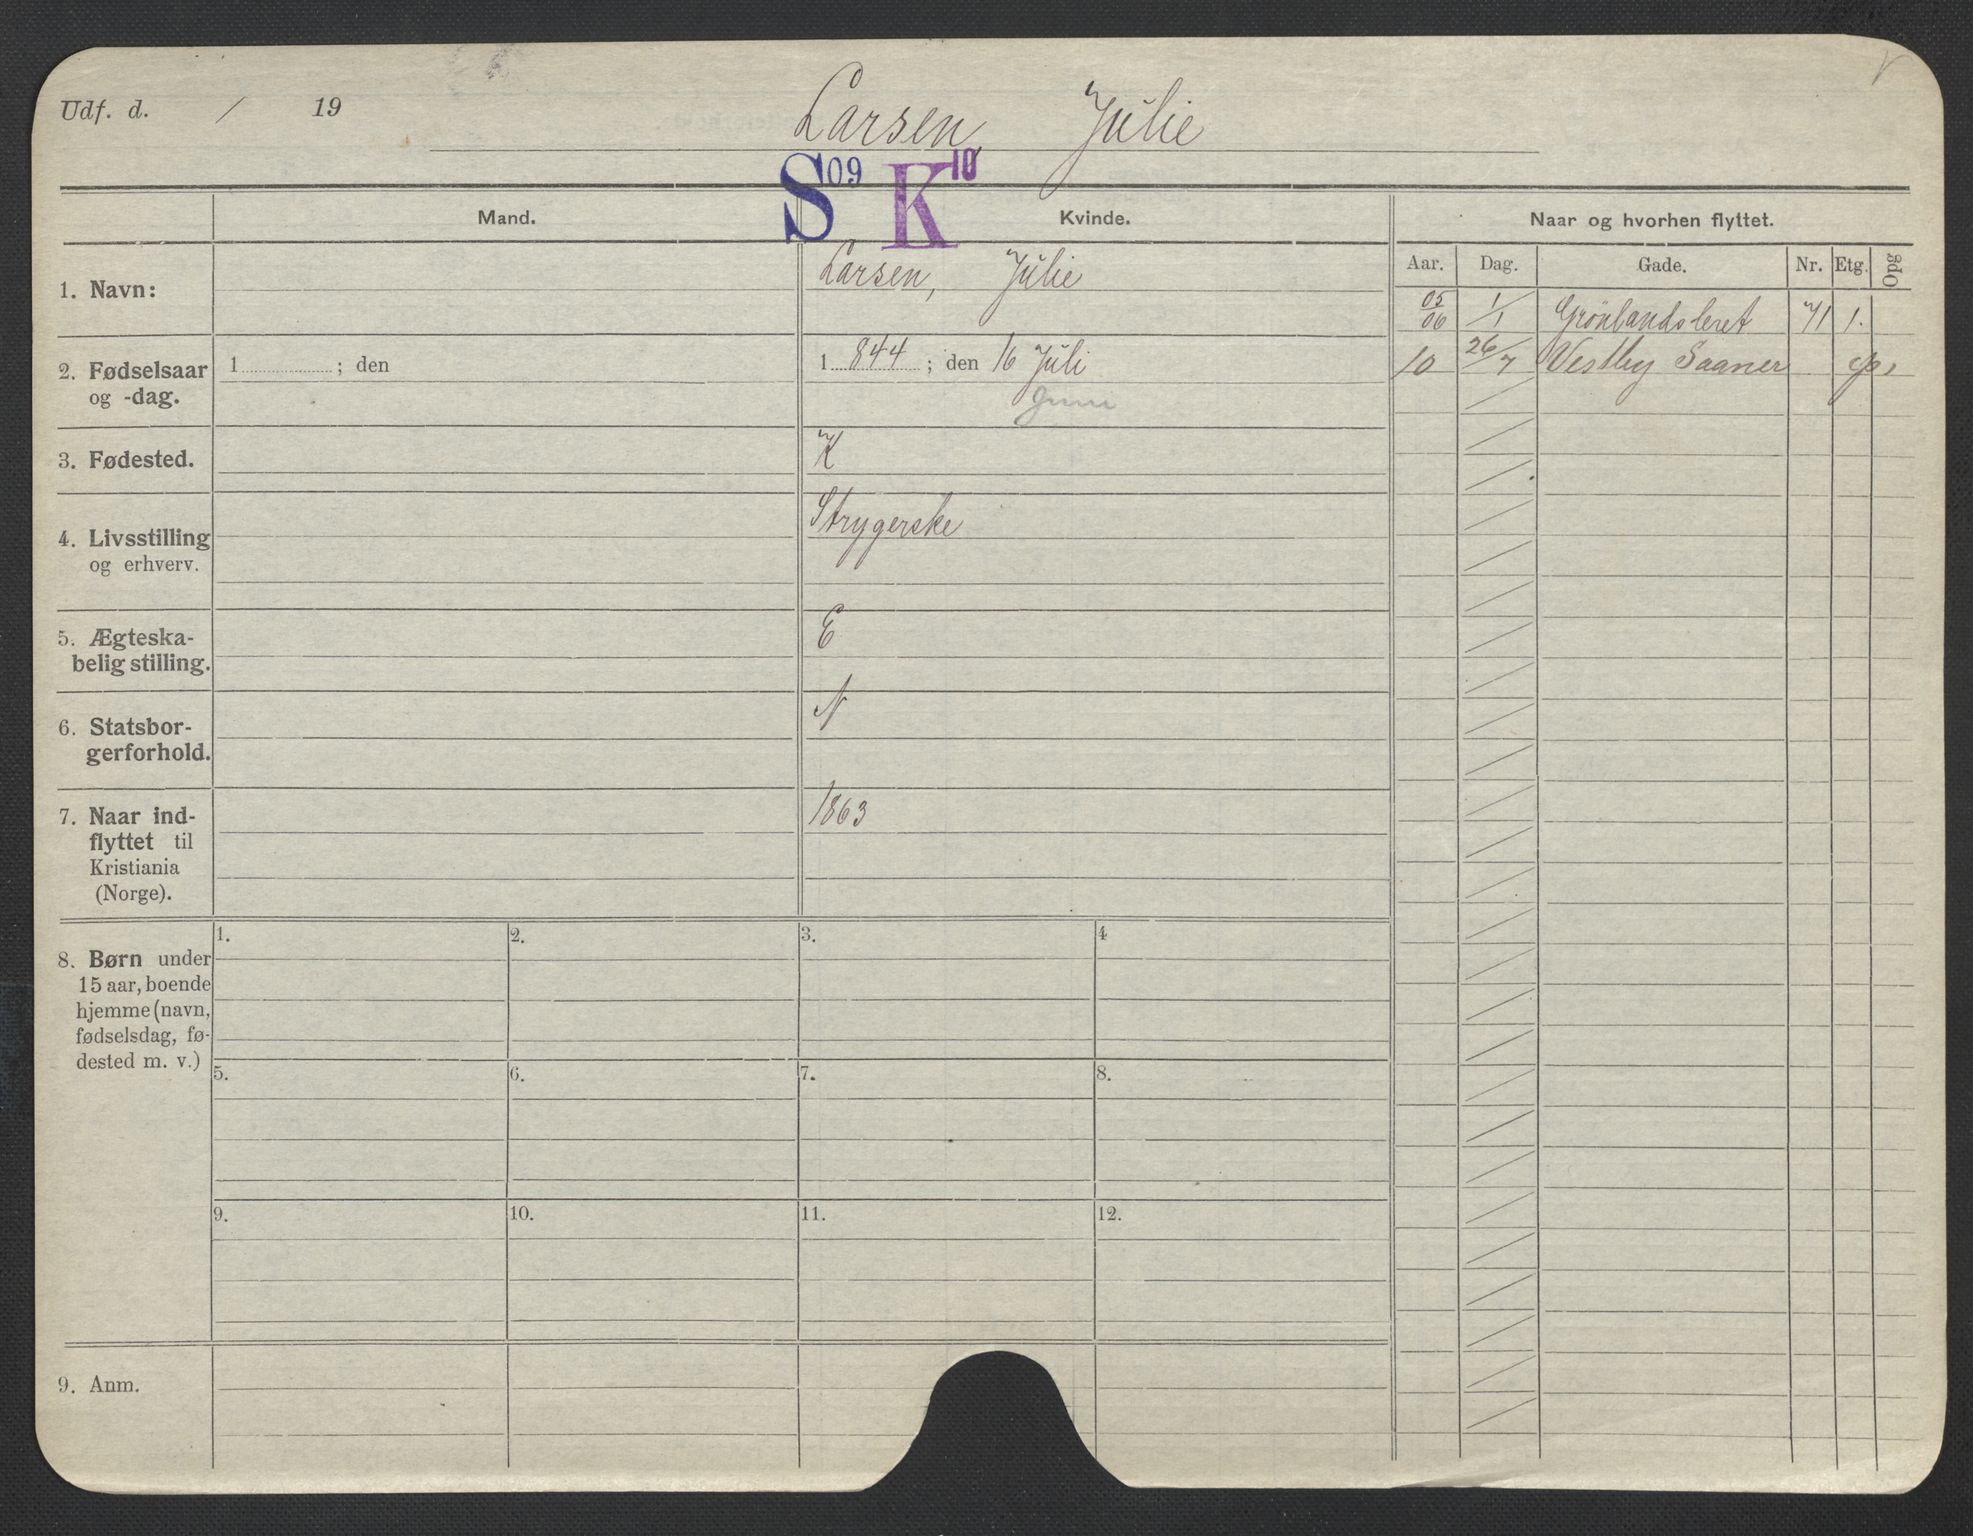 Udf. d. / 19
Larsen, Julie
S 09 K 10
Mand.
Kvinde.
Naar og hvorhen flyttet.
Aar. Dag. Gade. Nr. Etg. Opg
1. Navn:
Larsen, Julie
05 06 1/1 Grönlandsleret 71 1.
2. Fødselsaar
og -dag.
1 ; den
1 844 ; den 16 Juli
Juni
10 26/7 Vestby Saaner
3. Fødested.
K
4. Livsstilling
og erhverv.
Strygerske
5. Ægteska-
belig stilling.
E
6. Statsbor-
gerforhold.
N
7. Naar ind-
flyttet til
Kristiania
(Norge).
1863
8. Børn under
15 aar, boende
hjemme (navn,
fødselsdag, fø-
dested m. v.)
1. 2. 3. 4
5. 6. 7. 8.
9. 10. 11. 12.
9. Anm.